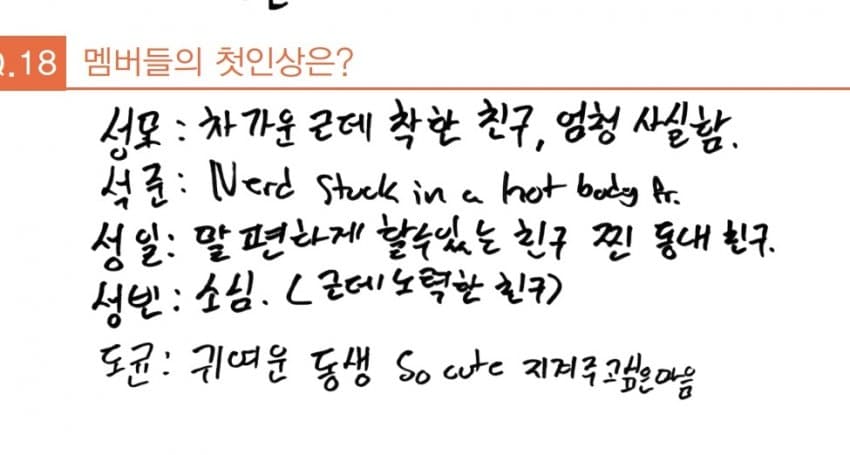 Q.18 멤버들의 첫인상은?
성모 : 차가운 근데 착한 친구, 엄청 사실함.
석준 : Nerd stuck in a hot body fr.
성일 : 말 편하게 할수있는 친구 찐 동내 친구.
성빈 : 소심. (근데 노력한 친구)
도균 : 귀여운 동생 So cute 지켜주고싶은마음